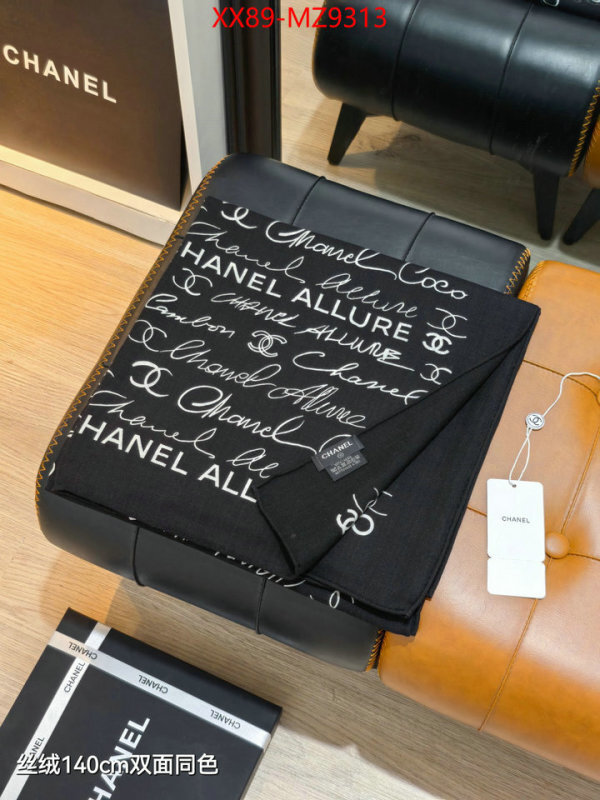 XX89-MZ9313
CHANEL
Chanel Coco
Chanel Allure
HANEL ALLURE
CHANEL ALLURE
Cambon Chanel
Chanel Allure
Chanel
Chanel
HANEL ALLU
CHANEL
CHANEL
CHANEL
CHANEL
CHANEL
CHANEL
CHANEL
丝绒140cm双面同色